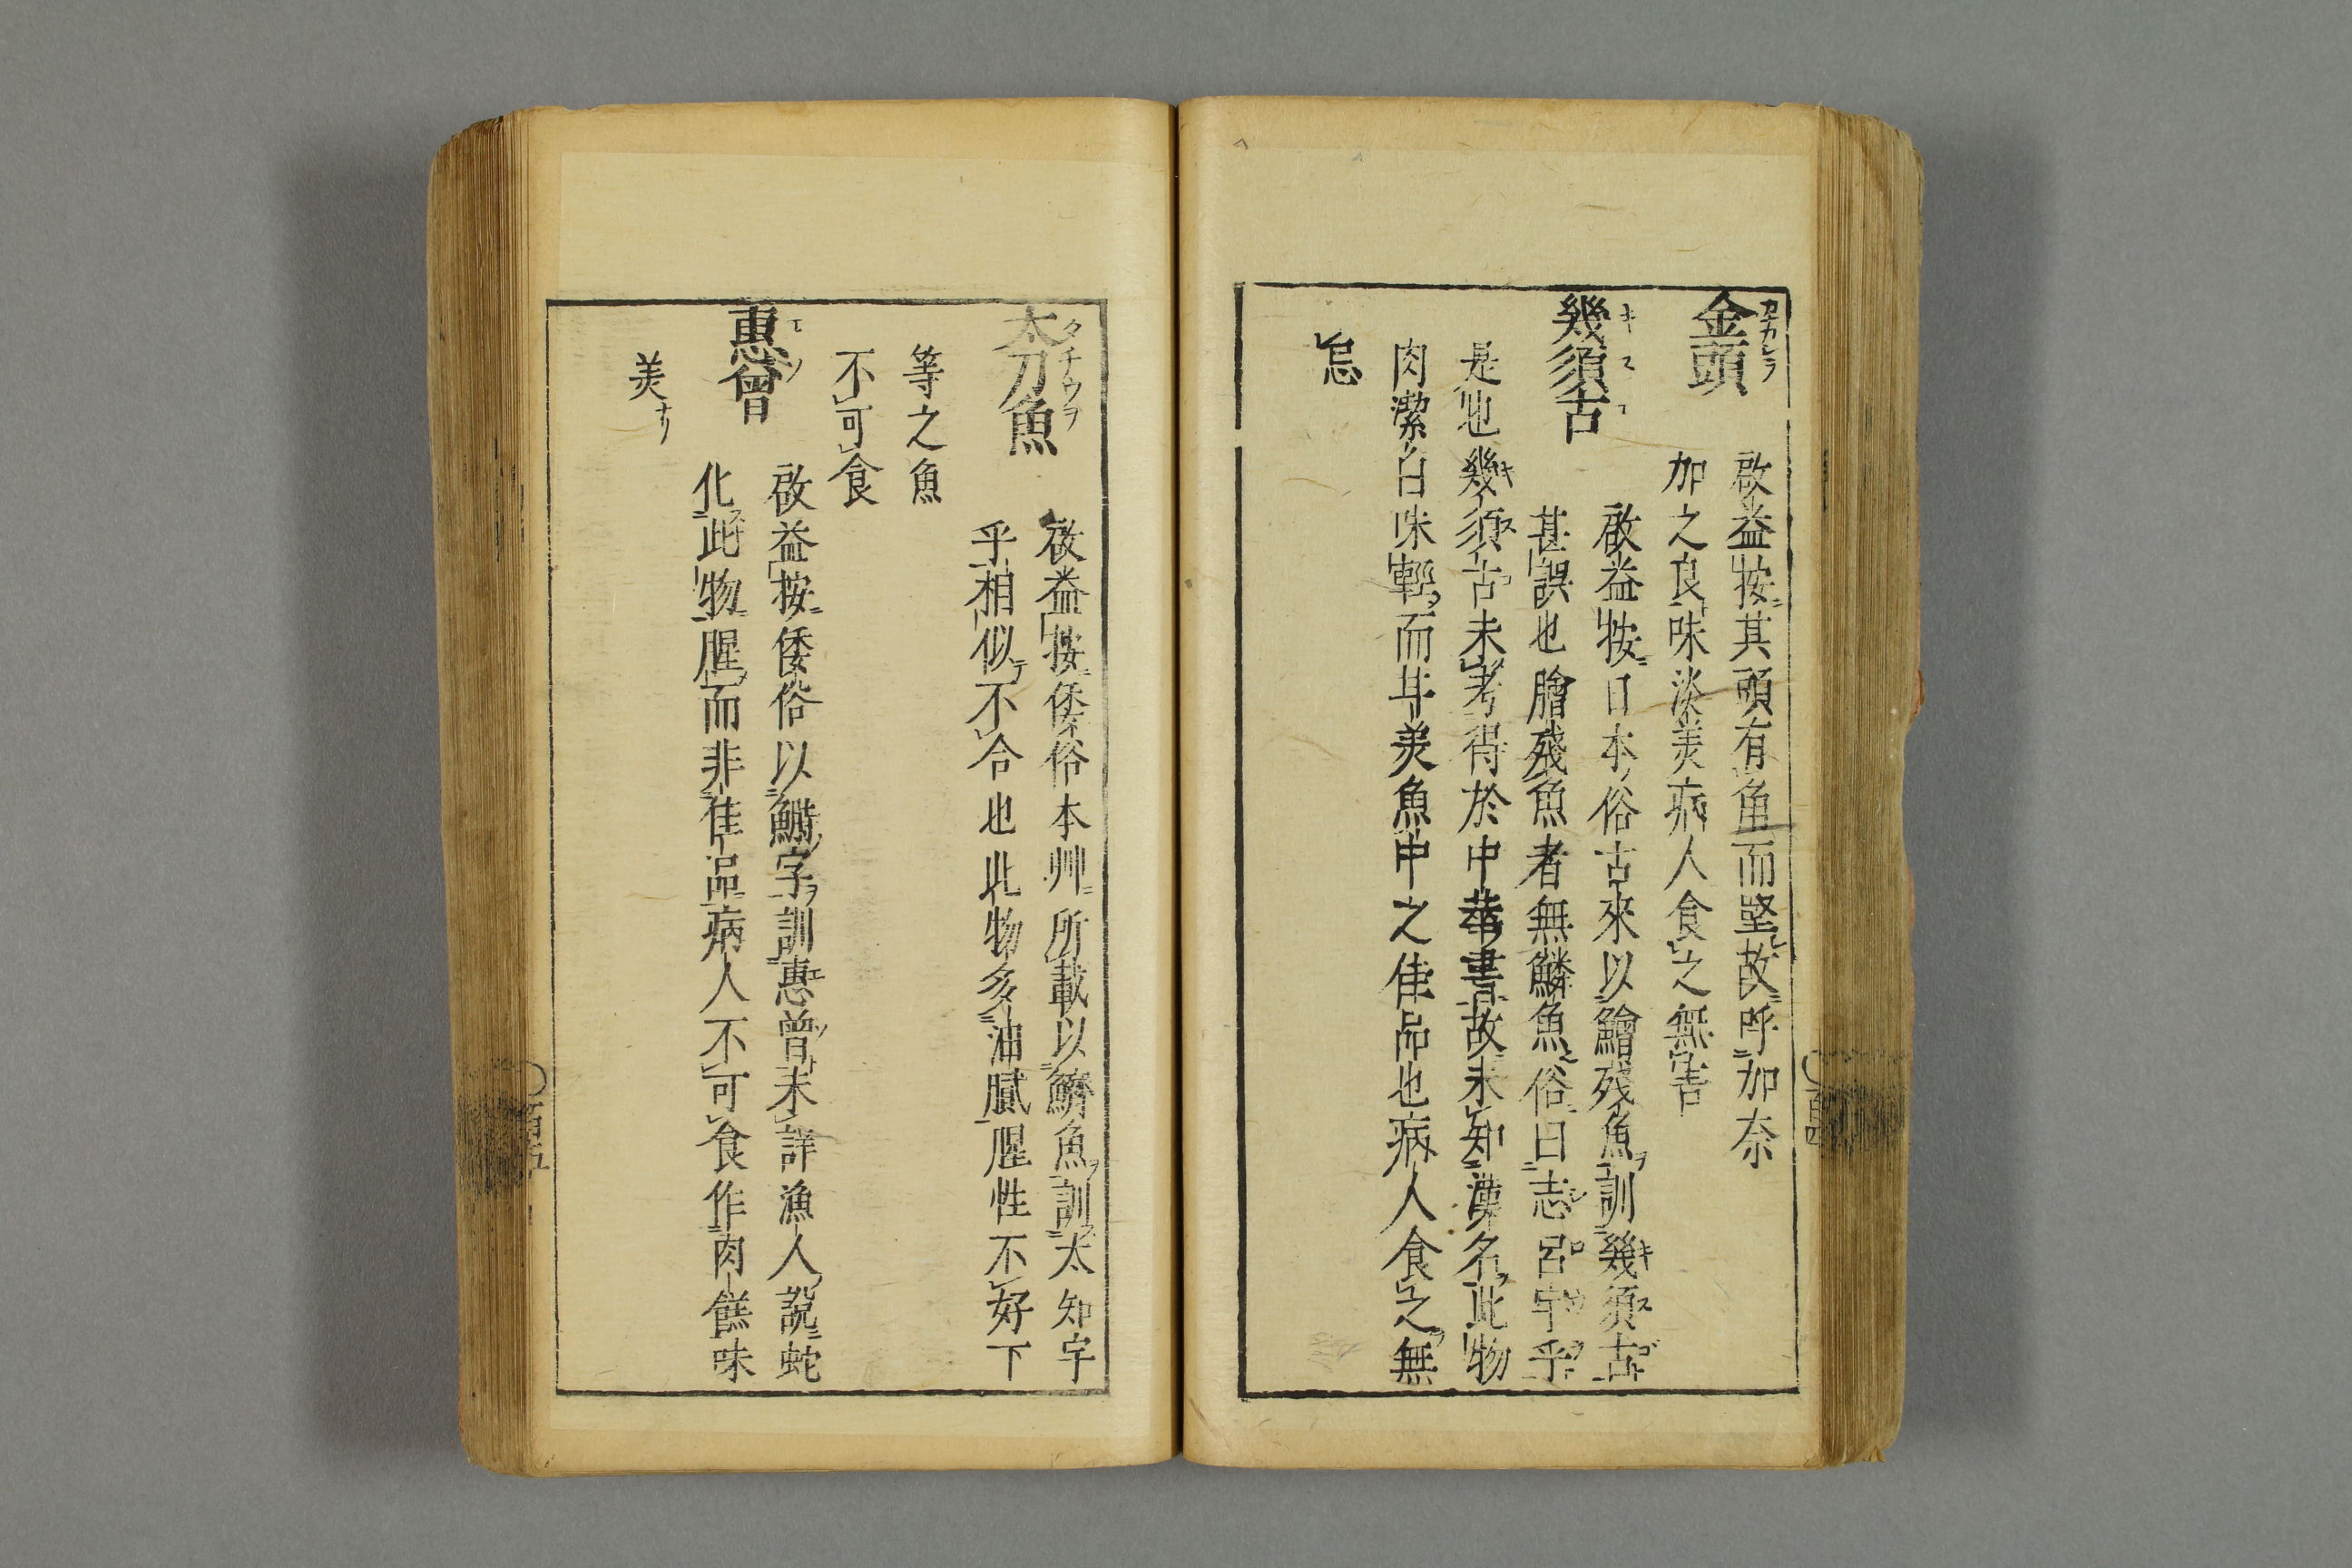 金頭
啟益按其頭有角而堅故呼加奈
加之良味淡美病人食之無害
幾須古
啟益按日本俗古來以鱠殘魚訓幾須古
甚誤也膾殘魚者無鱗魚俗曰志呂宇乎
是也幾須古未考得於中華書故未知漢名此物
肉潔白味輕而甘美魚中之佳品也病人食之無
忌
太刀魚
啟益按倭俗本艸所載以鱭魚訓太知宇
乎相似不合也此物多油膩腥性不好下
等之魚
不可食
惠曾
啟益按倭俗以字訓惠曾未詳漁人說蛇
化此物腥而非佳品病人不可食作肉餻味
美ナリ